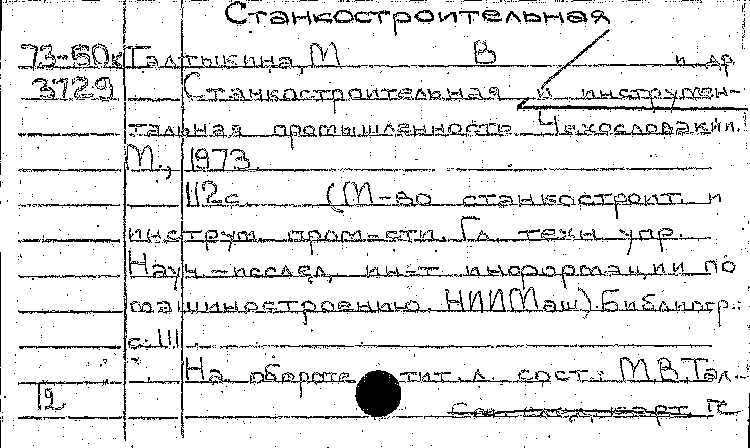 Станкостроительная
73-50к Галтыкина, М В и др
3729 Станкостроительная и инструмен-
тальная промышленность Чехословакии.
М., 1973
112с (М-во станкостроит. и
инструм. пром-сти. Гл. техн. упр.
Науч-исслед. ин-т информации по
машиностроению. НИИМаш). Библиогр.:
с. 111
На обороте тит. л. сост.: М.В. Гал-
12